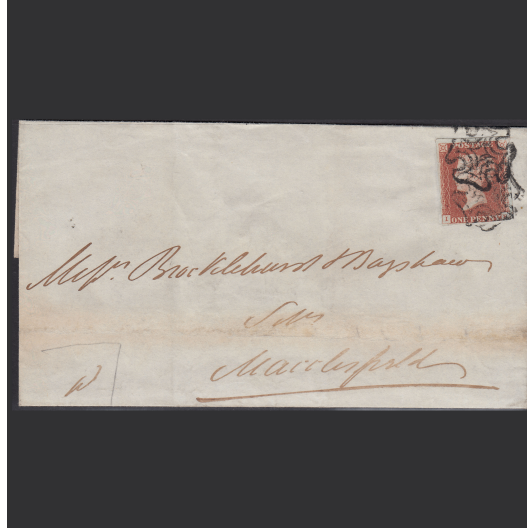 POSTAGE
I
ONE PENNY
Messrs Brocklehurst & Bagshaw
Solrs
Macclesfield